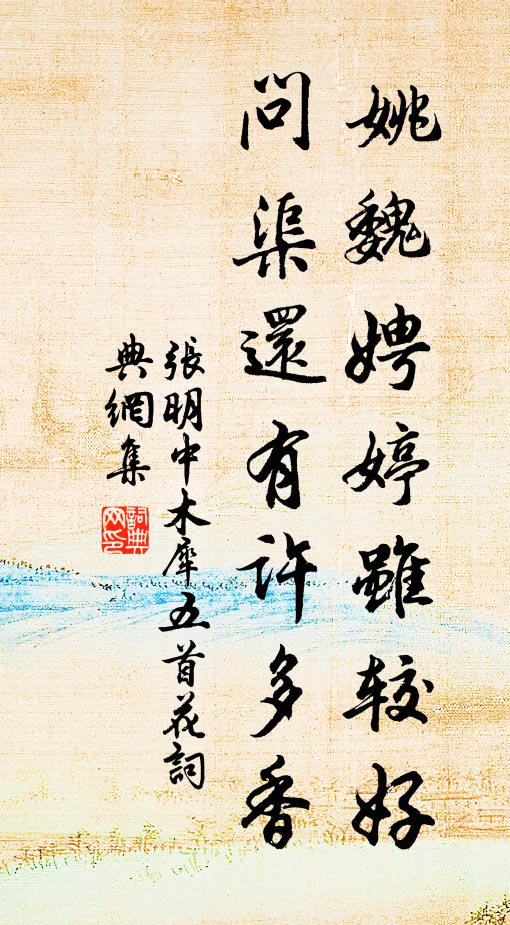 姚魏娉婷雖较好
問渠還有許多香
張明中木犀五首花詞
典網集
詞典网印